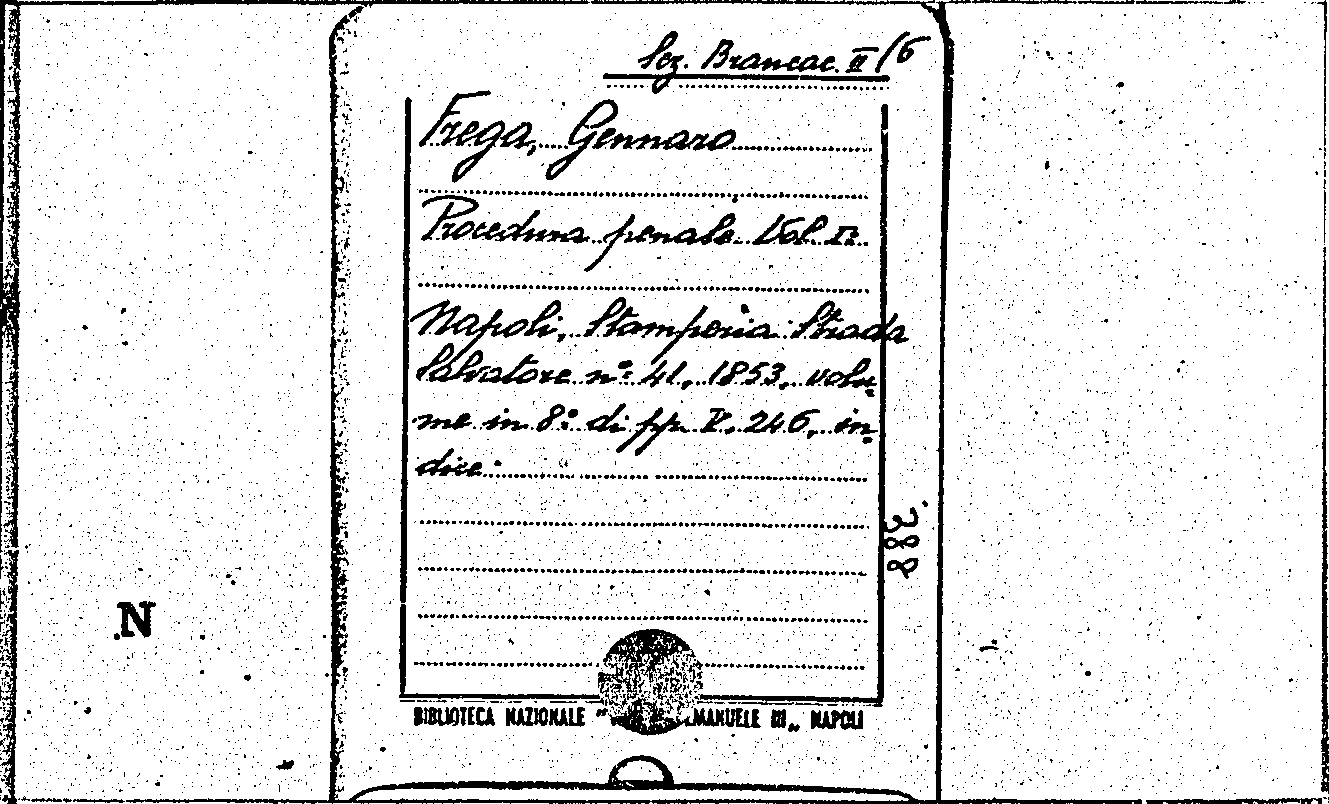 Sez. Brancac. II/6
Frega, Gennaro
Procedura penale. Vol. I:
Napoli, Stamperia Strada
Salvatore n° 41, 1853, volu=
me in 8° di pp. V. 246, in=
dice.
388
N
BIBLIOTECA NAZIONALE " EMANUELE III„ NAPOLI